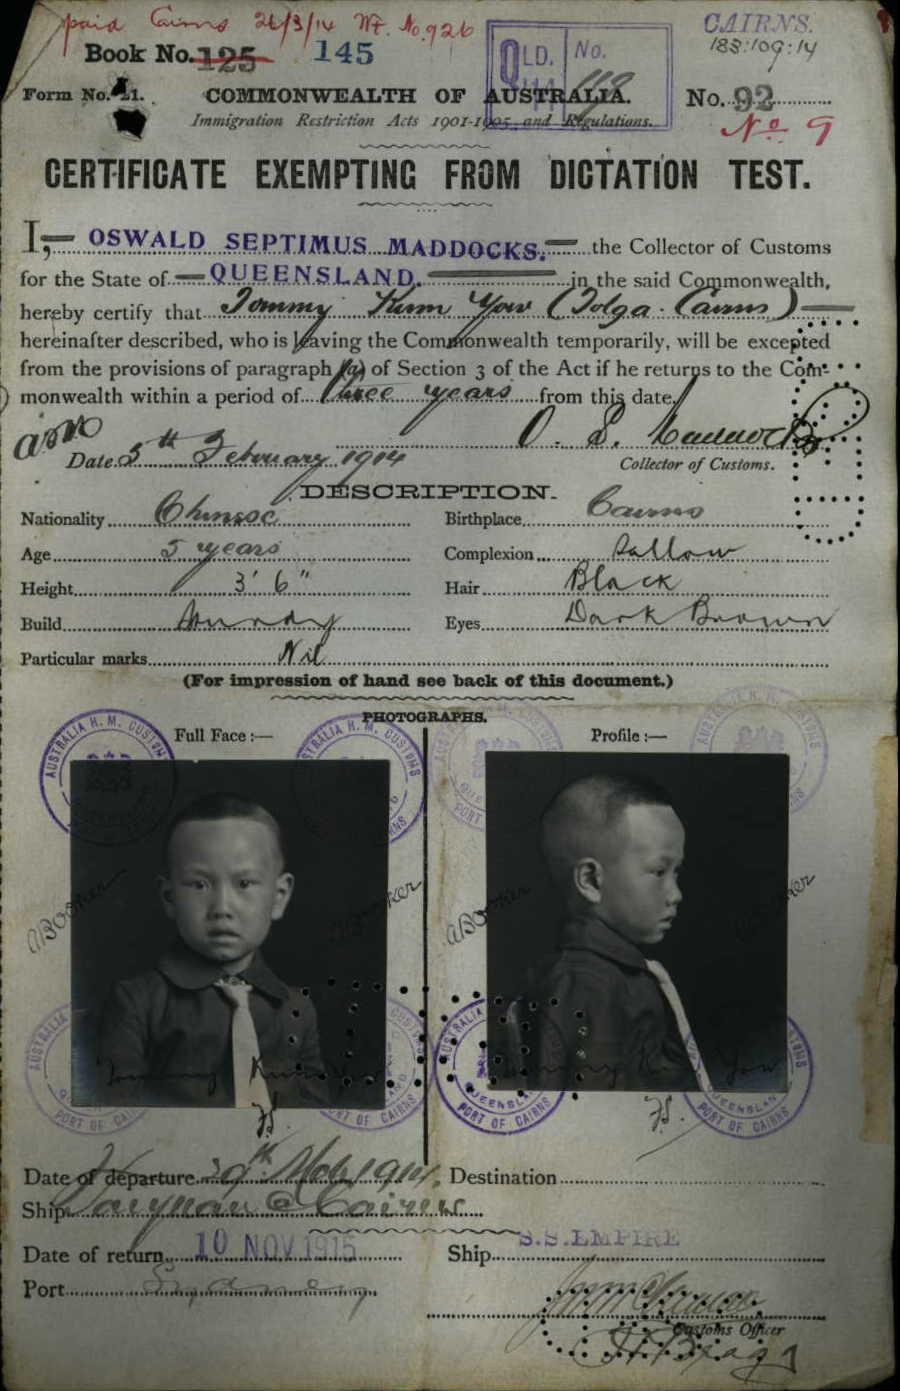 paid Cairns 26/3/14 Wt. No. 926
CAIRNS.
Book No. 125 145
QLD. No.
Form No. 21. COMMONWEALTH OF AUSTRALIA. No. 92
Immigration Restriction Acts 1901-1905 and Regulations.
No. 9
CERTIFICATE EXEMPTING FROM DICTATION TEST.
I, OSWALD SEPTIMUS MADDOCKS. the Collector of Customs
for the State of QUEENSLAND. in the said Commonwealth,
hereby certify that Tommy Kum Yow (Tolga - Cairns)
hereinafter described, who is leaving the Commonwealth temporarily, will be excepted
from the provisions of paragraph (a) of Section 3 of the Act if he returns to the Com-
monwealth within a period of three years from this date.
O. S. Maddocks
Date 5th February 1914 Collector of Customs.
DESCRIPTION.
Nationality Chinese Birthplace Cairns
Age 5 years Complexion Sallow
Height 3' 6" Hair Black
Build Sturdy Eyes Dark Brown
Particular marks Nil
(For impression of hand see back of this document.)
PHOTOGRAPHS.
Full Face :— Profile :—
AUSTRALIA H. M. CUSTOMS
QUEENSLAND
PORT OF CAIRNS
ABooker ABooker ABooker
Tommy Kum Yow Tommy Kum Yow
Date of departure 29th Mch 1914. Destination
Ship Taiyuan Cairns
Date of return 10 NOV 1915 Ship S.S. EMPIRE
Port Sydney
Customs Officer